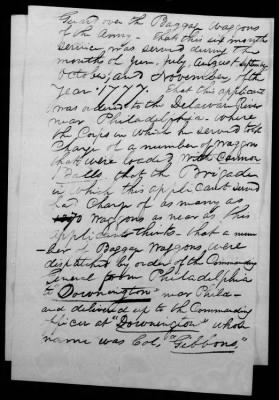 Guard over the Baggage Waggons
of the Army - That this six months
Service was served during the
months of June July August September
October, and November of the
Year 1777. That this applicant
was ordered to the Delaware River
near Philadelphia. Where
the Corps in which he served took
Charge of a number of Waggons
that were loaded with Cannon
Balls. that the Brigade
in which this applicant served
had Charge of as many as
Waggons as near as this
applicant thinks - that a num-
-ber of Baggage Waggons were
dispatched by order of the Commanding
General to Philadelphia
to Downington near Phila-
and delivered up to the Commanding
officer at "Downington" whose
name was Col. "Gibbons"